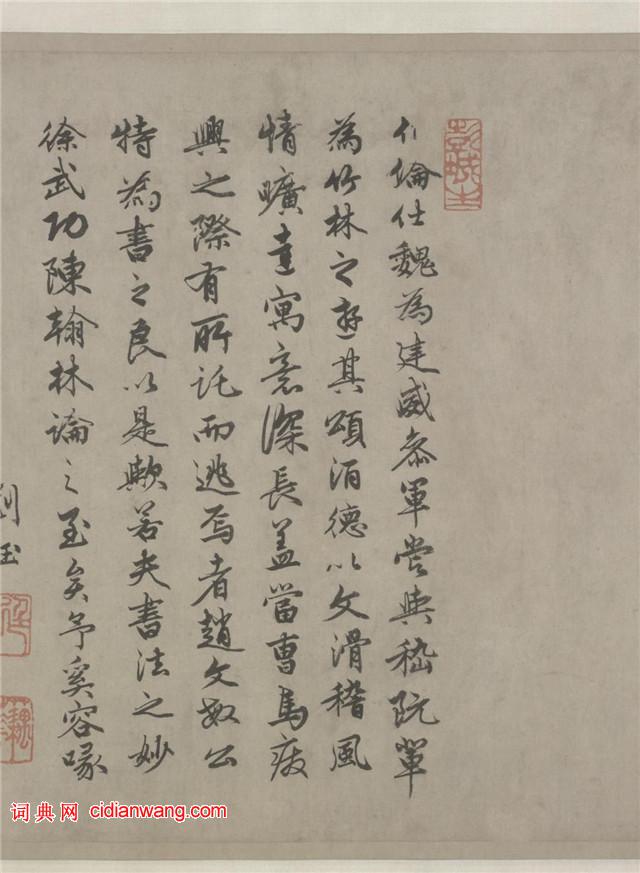 彭城
倫仕魏為建威叅軍嘗與嵇阮輩
為竹林之遊其頌酒德以文滑稽風
情曠達寓意深長蓋當曹馬廢
興之際有所託而逃焉者趙文敏公
特為書之良以是歟若夫書法之妙
徐武功陳翰林論之至矣予奚容喙
劉玉
词典网 cidianwang.com